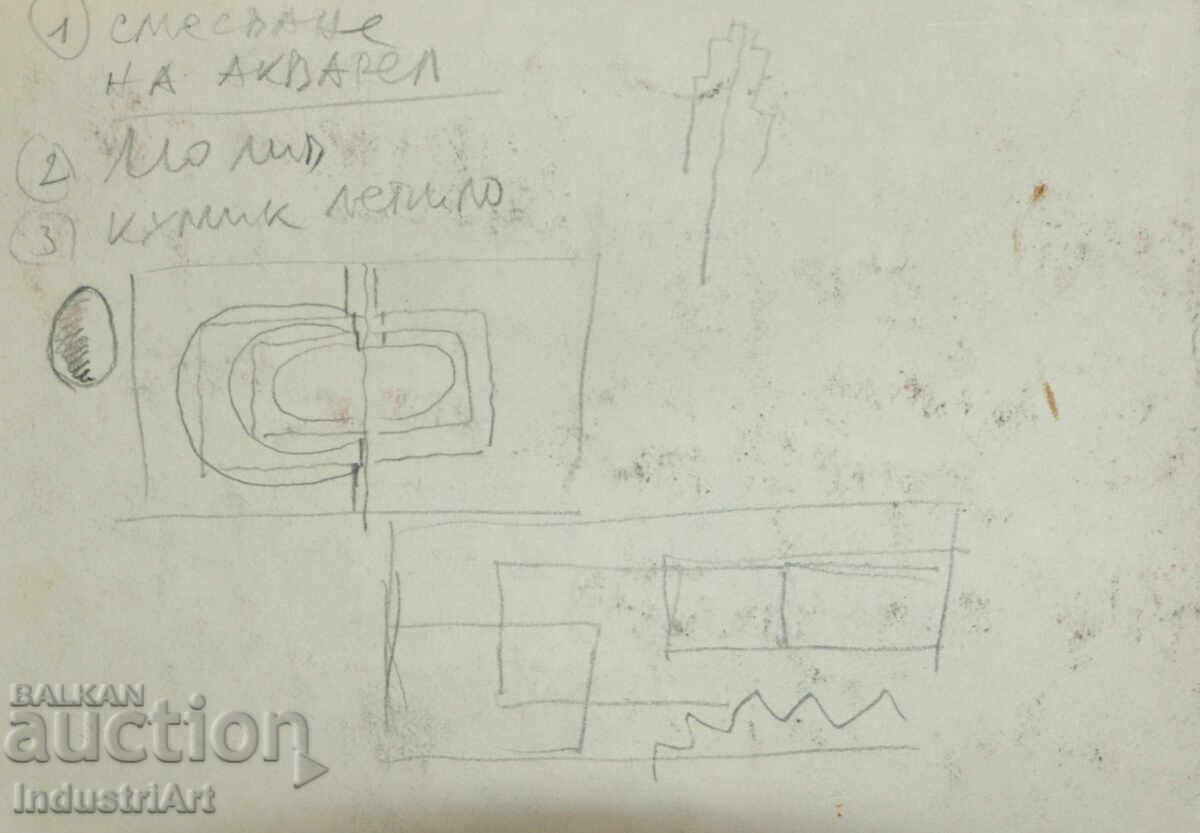 1 смесване
на акварел
2 молив
3 кумик лепило
BALKAN
auction
IndustriArt